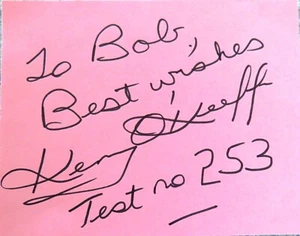 To Bob,
Best wishes
Kerry O'Keeffe
Test no 253